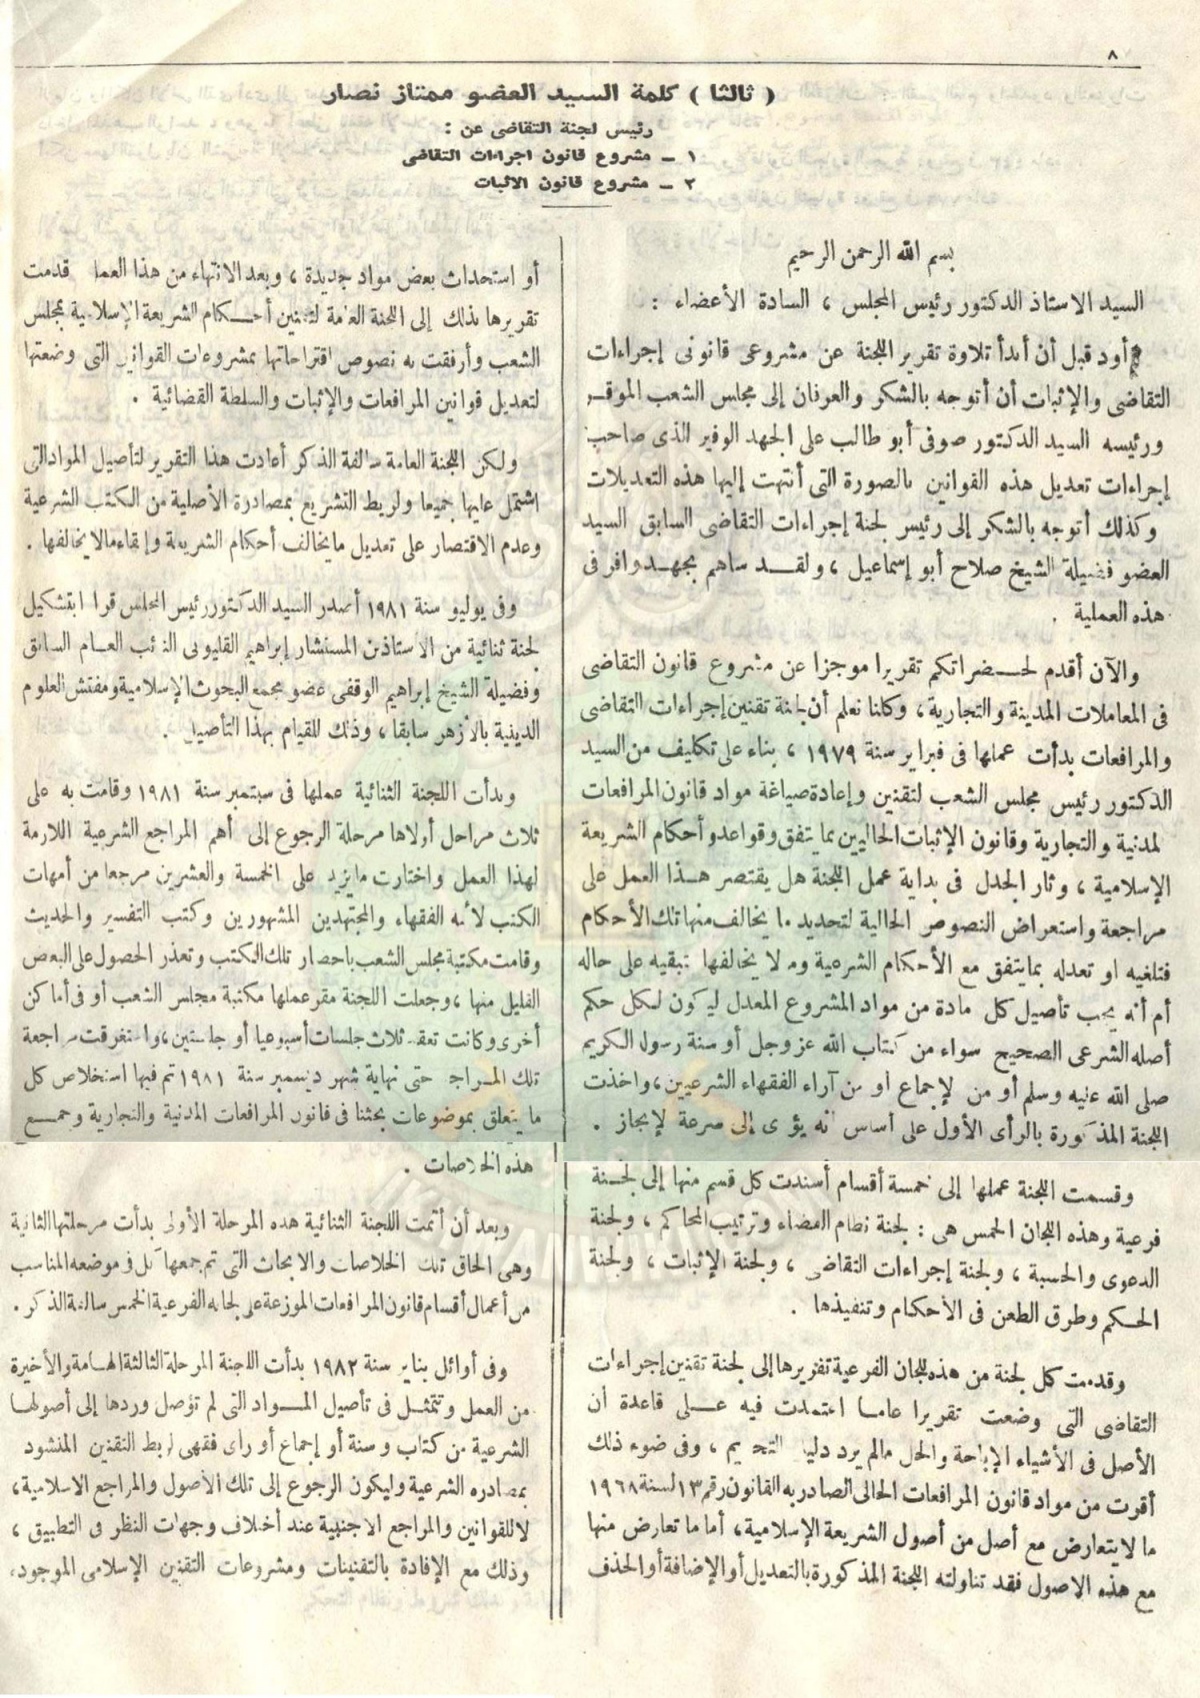 ٨
( ثالثا ) كلمة السيد العضو ممتاز نصار
رئيس لجنة التقاضى عن :
١ ـ مشروع قانون اجراءات التقاضى
٢ ـ مشروع قانون الاثبات
بسم الله الرحمن الرحيم
السيد الاستاذ الدكتور رئيس المجلس ، السادة الأعضاء :
أود قبل أن أبدأ تلاوة تقرير اللجنة عن مشروعى قانونى إجراءات
التقاضى والإثبات أن أتوجه بالشكر والعرفان إلى مجلس الشعب الموقر
ورئيسه السيد الدكتور صوفى أبو طالب على الجهد الوفير الذى صاحب
إجراءات تعديل هذه القوانين بالصورة التى أنتهت إليها هذه التعديلات
وكذلك أتوجه بالشكر إلى رئيس لجنة إجراءات التقاضى السابق السيد
العضو فضيلة الشيخ صلاح أبو إسماعيل ، ولقـد ساهم بجهـد وافر فى
هذه العملية .
والآن أقدم لحضراتكم تقريرا موجزا عن مشروع قانون التقاضى
فى المعاملات المدينة والتجارية ، وكلنا نعلم أن لجنة تقنين إجراءات التقاضى
والمرافعات بدأت عملها فى فبراير سنة ١٩٧٩ ، بناء على تكليف من السيد
الدكتور رئيس مجلس الشعب لتقنين وإعادة صياغة مواد قانون المرافعات
لمدنية والتجارية وقانون الإثبات الحاليين بما يتفق وقواعد وأحكام الشريعة
الإسلامية ، وثار الجدل فى بداية عمل اللجنة هل يقتصر هـذا العمل على
مراجعة واستعراض النصوص الحالية لتحديد ما يخالف منها تلك الأحكام
فتلغيه او تعدله بما يتفق مع الأحكام الشرعية وما لا يخالفها تبقيه على حاله
أم أنه يجب تأصيل كل مادة من مواد المشروع المعدل ليكون لكل حكم
أصله الشرعى الصحيح سواء من كتاب الله عز وجل أو سنة رسوله الكريم
صلى الله عليه وسلم أو من الإجماع او من آراء الفقهاء الشرعيين ، واخذت
اللجنة المذكورة بالرأى الأول على أساس انه يؤدى إلى سرعة لإنجاز .
وقسمت اللجنة عملها إلى خمسة أقسام أسندت كل قسم منها إلى لجـنة
فرعية وهذه اللجان الخمس هى : لجنة نظام القضاء وترتيب المحاكم ، ولجنة
الدعوى والحسبة ، ولجنة إجراءات التقاضى ، ولجنة الإثبات ، ولجنة
الحـكم وطرق الطعن فى الأحكام وتنفيذها .
وقدمت كل لجنة من هذه للجان الفرعية تقريرها إلى لجنة تقنين إجراءات
التقاضى التى وضعت تقريرا عامـا اعتمدت فيه عـلى قاعدة أن
الأصل فى الأشياء الإباحة والحل مالم يرد دليل التحريم ، وفى ضوء ذلك
أقرت من مواد قانون المرافعات الحالى الصادر به القانون رقم ١٣ لسنة ١٩٦٨
ما لا يتعارض مع أصل من أصول الشريعة الإسلامية ، أما ما تعارض منها
مع هذه الاصول فقد تناولته اللجنة المذكورة بالتعديل أو الإضافة أو الحذف
أو استحداث بعض مواد جديدة ، وبعد الانتهاء من هذا العمل قدمت
تقريرها بذلك إلى اللجنة العامة لتقنين أحـكام الشريعة الإسلامية بمجلس
الشعب وأرفقت به نصوص اقتراحاتها بمشروعات القوانين التى وضعتها
لتعديل قوانين المرافعات والإثبات والسلطة القضائية .
ولكن اللجنة العامة سالفة الذكر أعادت هذا التقرير لتأصيل المواد التى
اشتمل عليها جميعا ولربط التشريع بمصادرة الأصلية من الكتب الشرعية
وعدم الاقتصار على تعديل ما يخالف أحكام الشريعة وإبقاء مالا يخالفها .
وفى يوليو سنة ١٩٨١ أصدر السيد الدكتور رئيس المجلس قرارا بتشكيل
لجنة ثنائية من الاستاذين المستشار إبراهيم القليوبى النائب العـام السابق
وفضيلة الشيخ إبراهيم الوقفى عضو مجمع البحوث الإسلامية ومفتش العلوم
الدينية بالأزهر سابقا ، وذلك للقيام بهذا التأصيل .
وبدأت اللجنة الثنائية عملها فى سبتمبر سنة ١٩٨١ وقامت به على
ثلاث مراحل أولاها مرحلة الرجوع إلى أهم المراجع الشرعية اللازمة
لهذا العمل واختارت ما يزيد على الخمسة والعشرين مرجعا من أمهات
الكتب لائمة الفقهاء والمجتهدين المشهورين وكتب التفسير والحديث
وقامت مكتبة مجلس الشعب باحضار تلك الكتب وتعذر الحصول على البعص
القليل منها ، وجعلت اللجنة مقر عملها مكتبة مجلس الشعب أو فى أماكن
أخرى وكانت تعقد ثلاث جلسات أسبوعيا أو جلستين ، واستغرقت مراجعة
تلك المـراجع حتى نهاية شهر ديسمبر سنة ١٩٨١ تم فيها استخلاص كل
ما يتعلق بموضوعات بحثنا فى قانون المرافعات المدنية والتجارية وجمـع
هذه الخلاصات .
وبعد أن أتمت اللجنة الثنائية هده المرحلة الأولى بدأت مرحلتها الثانية
وهى الحاق تلك الخلاصات والابحاث التى تم جمعها كل فى موضعه المناسب
من أعمال أقسام قانون المرافعات الموزعة على لجانه الفرعية الخمس سالفة الذكر .
وفى أوائل يناير سنة ١٩٨٢ بدأت اللجنة المرحلة الثالثة الهامة والأخيرة
من العمل وتتمثـل فى تأصيل المـواد التى لم تؤصل وردها إلى أصولهـا
الشرعية من كتاب وسنة أو إجماع أو رأى فقهى لربط التقنين المنشود
بمصادره الشرعية وليكون الرجوع إلى تلك الأصول والمراجع الاسلامية ،
لا للقوانين والمراجع الاجنبية عند أختلاف وجهات النظر فى التطبيق ،
وذلك مع الإفادة بالتقنينات ومشروعات التقنين الإسلامى الموجود ،